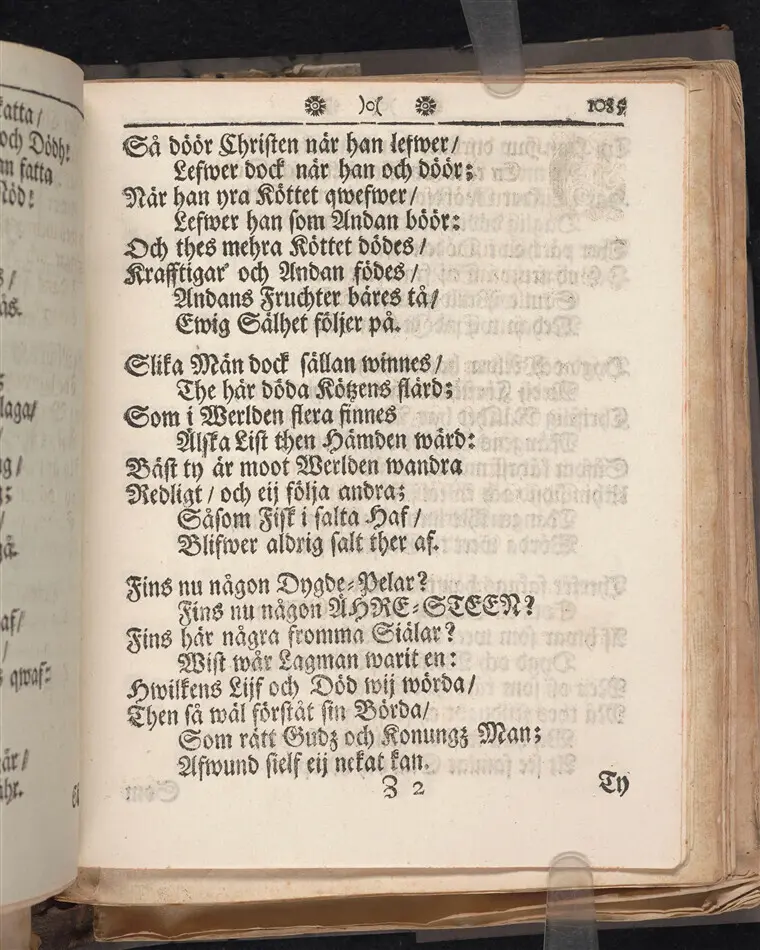 atta/
och Dödh:
an fatta
Nöd:
äs.
laga/
ng/
på.
af/
qwaf:
är/
ähr.
)o(
1085
Så döör Christen när han lefwer/
Lefwer dock när han och döör;
När han yra Köttet qwefwer/
Lefwer han som Andan böör:
Och thes mehra Köttet dödes/
Krafftigar' och Andan födes/
Andans Fruchter bäres tå/
Ewig Sälhet följer på.
Slika Män dock sällan winnes/
The här döda Kötzens flärd;
Som i Werlden flera finnes
Älska List then Hämden wärd:
Bäst ty är moot Werlden wandra
Redligt/ och eij följa andra;
Såsom Fisk i salta Haf/
Blifwer aldrig salt ther af.
Fins nu någon Dygde-Pelar?
Fins nu någon ÄHRE-STEEN?
Fins här några fromma Siälar?
Wist wår Lagman warit en:
Hwilkens Lijf och Död wij wörda/
Then så wäl förståt sin Börda/
Som rätt Gudz och Konungz Man;
Afwund sielf eij nekat kan.
Z 2
Ty